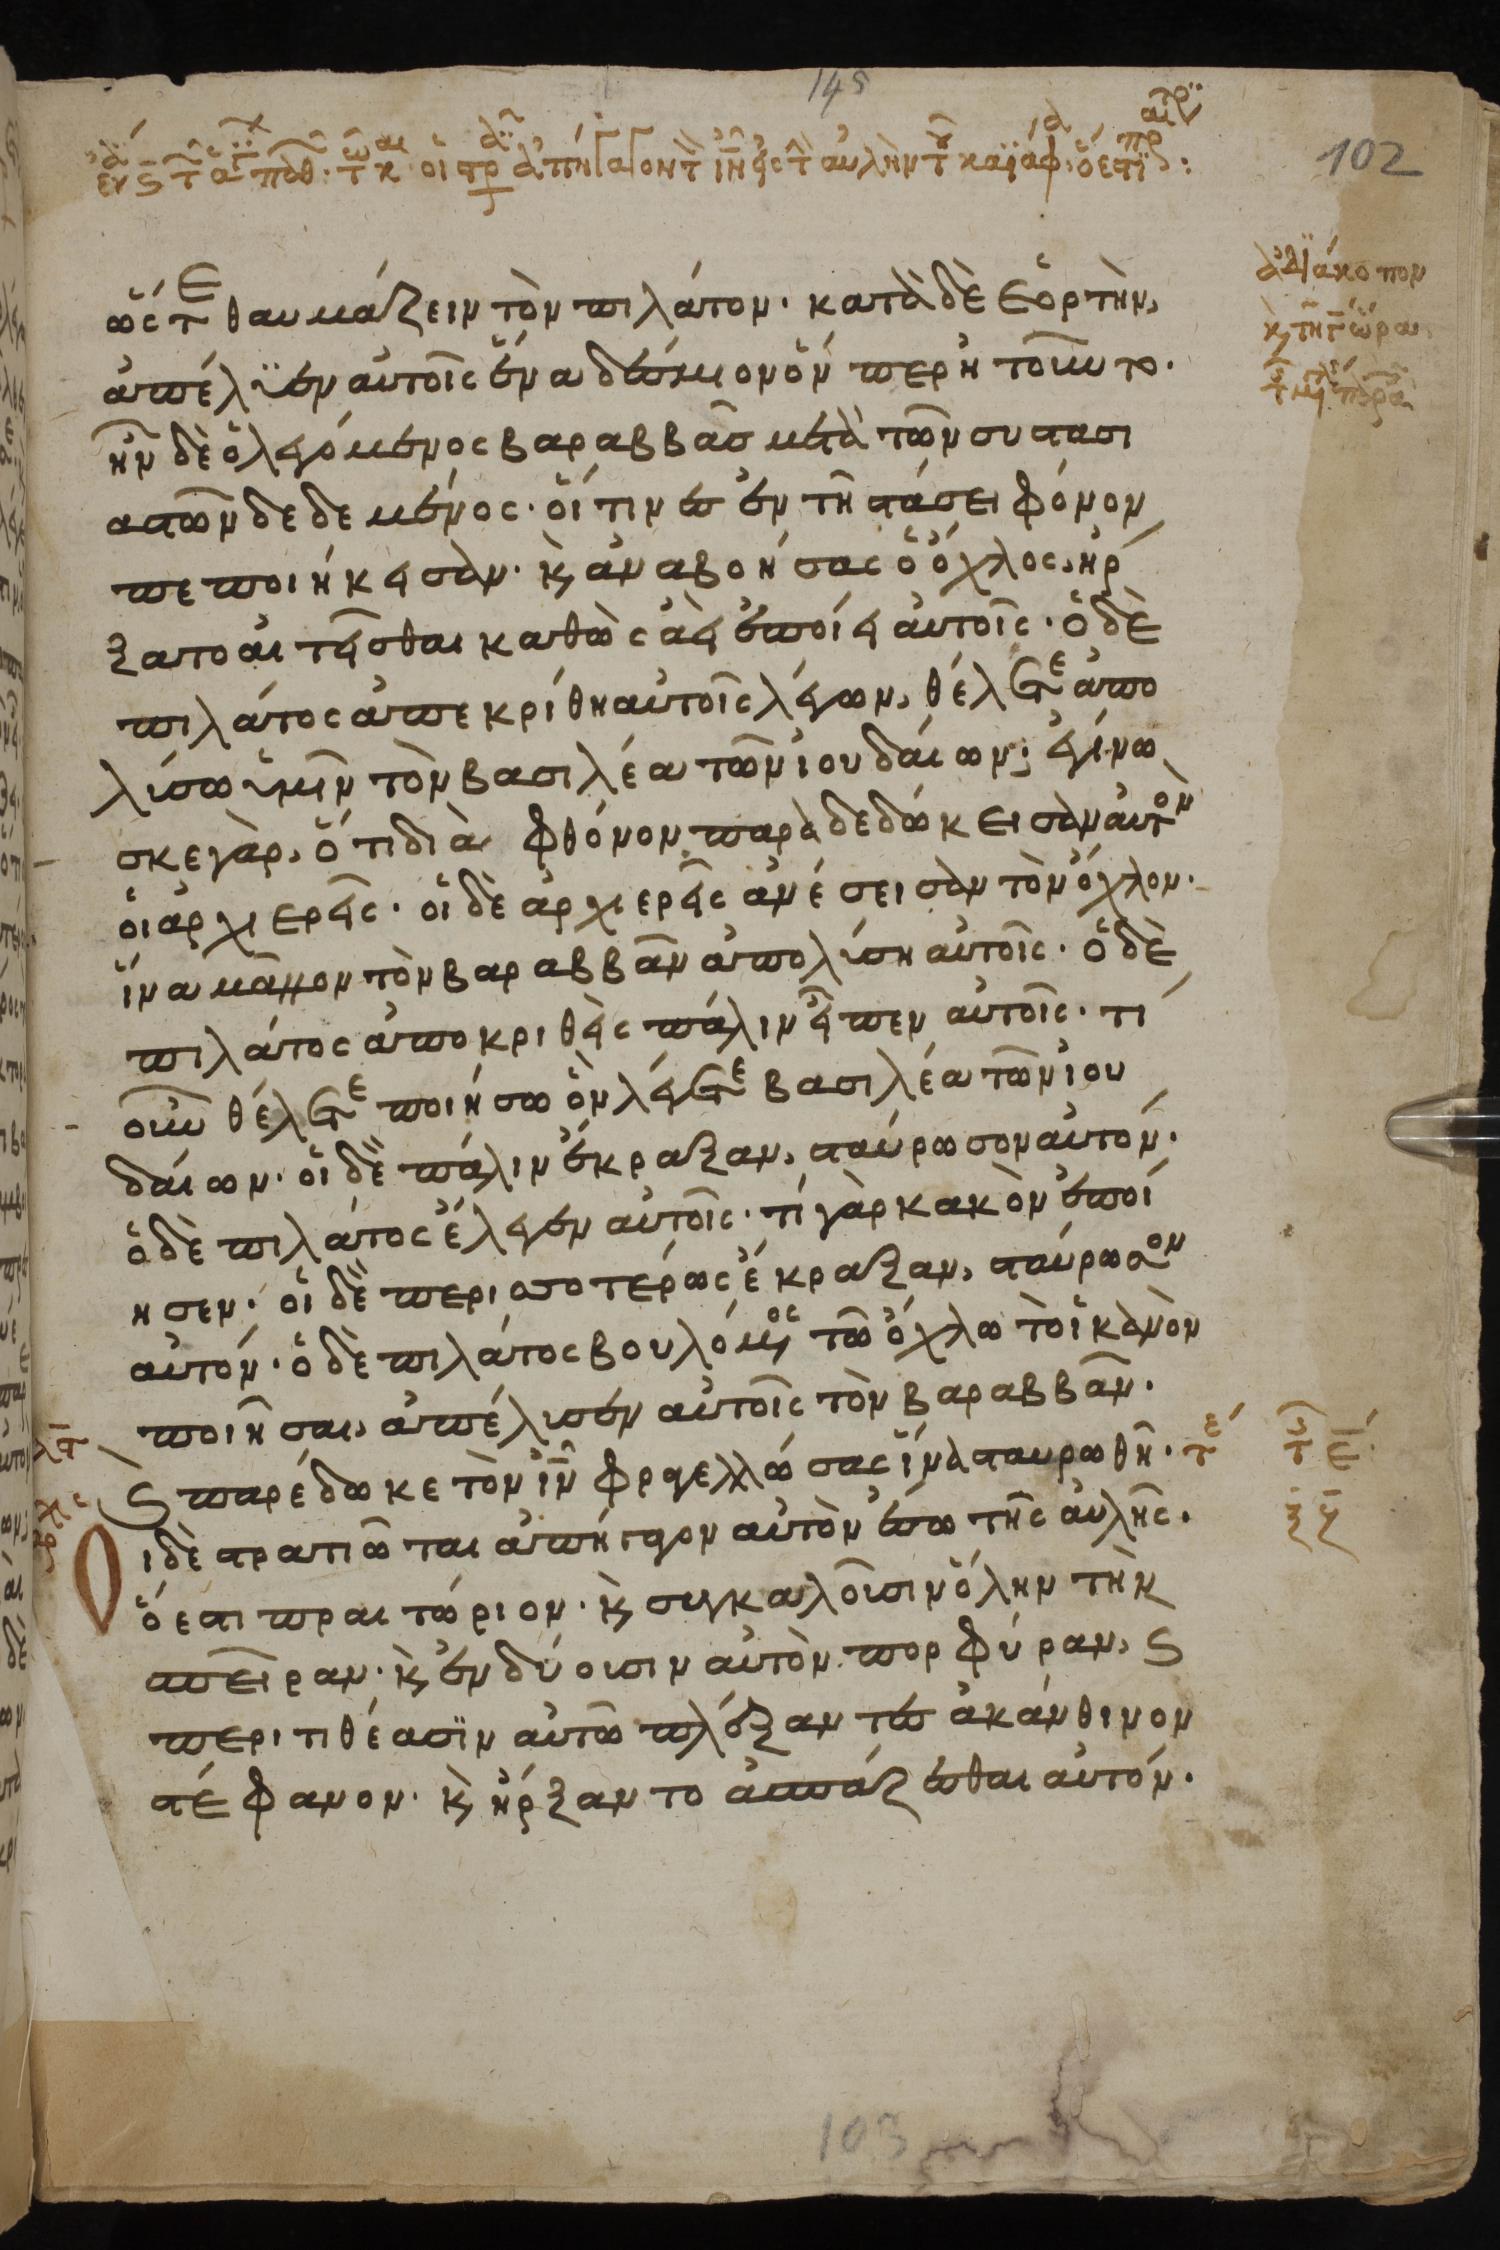 145
102
ὥστε θαυμάζειν τὸν πιλάτον· κατὰ δὲ ἑορτὴν,
ἀπέλϋεν αὐτοῖς ἕνα δέσμιον ὅν περ ἠτοῦντο.
ἦν δὲ ὁ λεγόμενος βαραββᾶσ μετὰ τῶν συστασι
αστῶν δεδεμένος· οἵτινες ἐν τῆ στάσει φόνον
πεποιήκεισαν· κ, ἀναβοήσας ὁ ὄχλος, ἤρ
ξατο αἰτεῖσθαι καθὼς ἀεὶ ἐποίει αὐτοῖς· ὁ δὲ
πιλάτος ἀπεκρίθη αὐτοῖς λέγων, θέλετε ἀπο
λύσω ὑμῖν τὸν βασιλέα τῶν ἰουδαίων; ἐγίνω
σκε γὰρ, ὅτι διὰ φθόνον παραδεδώκεισαν αὐτὸν
οἱ ἀρχιερεῖς· οἱ δὲ ἀρχιερεῖς ἀνέσεισαν τὸν ὄχλον.
ἵνα μᾶλλον τὸν βαραββᾶν ἀπολύση αὐτοῖς· ὁ δὲ
πιλάτος ἀποκριθεὶς πάλιν εἶπεν αὐτοῖς· τί
οὖν θέλετε ποιήσω ὃν λέγετε βασιλέα τῶν ἰου
δαίων· οἱ δὲ πάλιν ἔκραξαν, σταύρωσον αὐτόν.
ὁ δὲ πιλάτος ἔλεγεν αὐτοῖς· τί γὰρ κακὸν ἐποί
ησεν· οἱ δὲ περισσοτέρως ἔκραξαν, σταύρωσον
αὐτόν· ὁ δὲ πιλάτος βουλόμενος τῶ ὄχλω τὸ ἱκανὸν
ποιῆσαι, ἀπέλυσεν αὐτοῖς τὸν βαραββᾶν.
ϛ παρέδωκε τὸν ἰν φραγελλώσας ἵνα σταυρωθῆ.
Οἱ δὲ στρατιῶται ἀπήγαγον αὐτὸν ἔσω τῆς αὐλῆς.
ὅ ἐστι πραιτώριον· κ, συγκαλοῦσιν ὅλην τὴν
σπεῖραν· κ, ἐνδύουσιν αὐτὸν πορφύραν, ϛ
περιτιθέασϊν αὐτῶ πλέξαντες ἀκάνθινον
στέφανον· κ, ἤρξαντο ἀσπάζεσθαι αὐτόν.
103